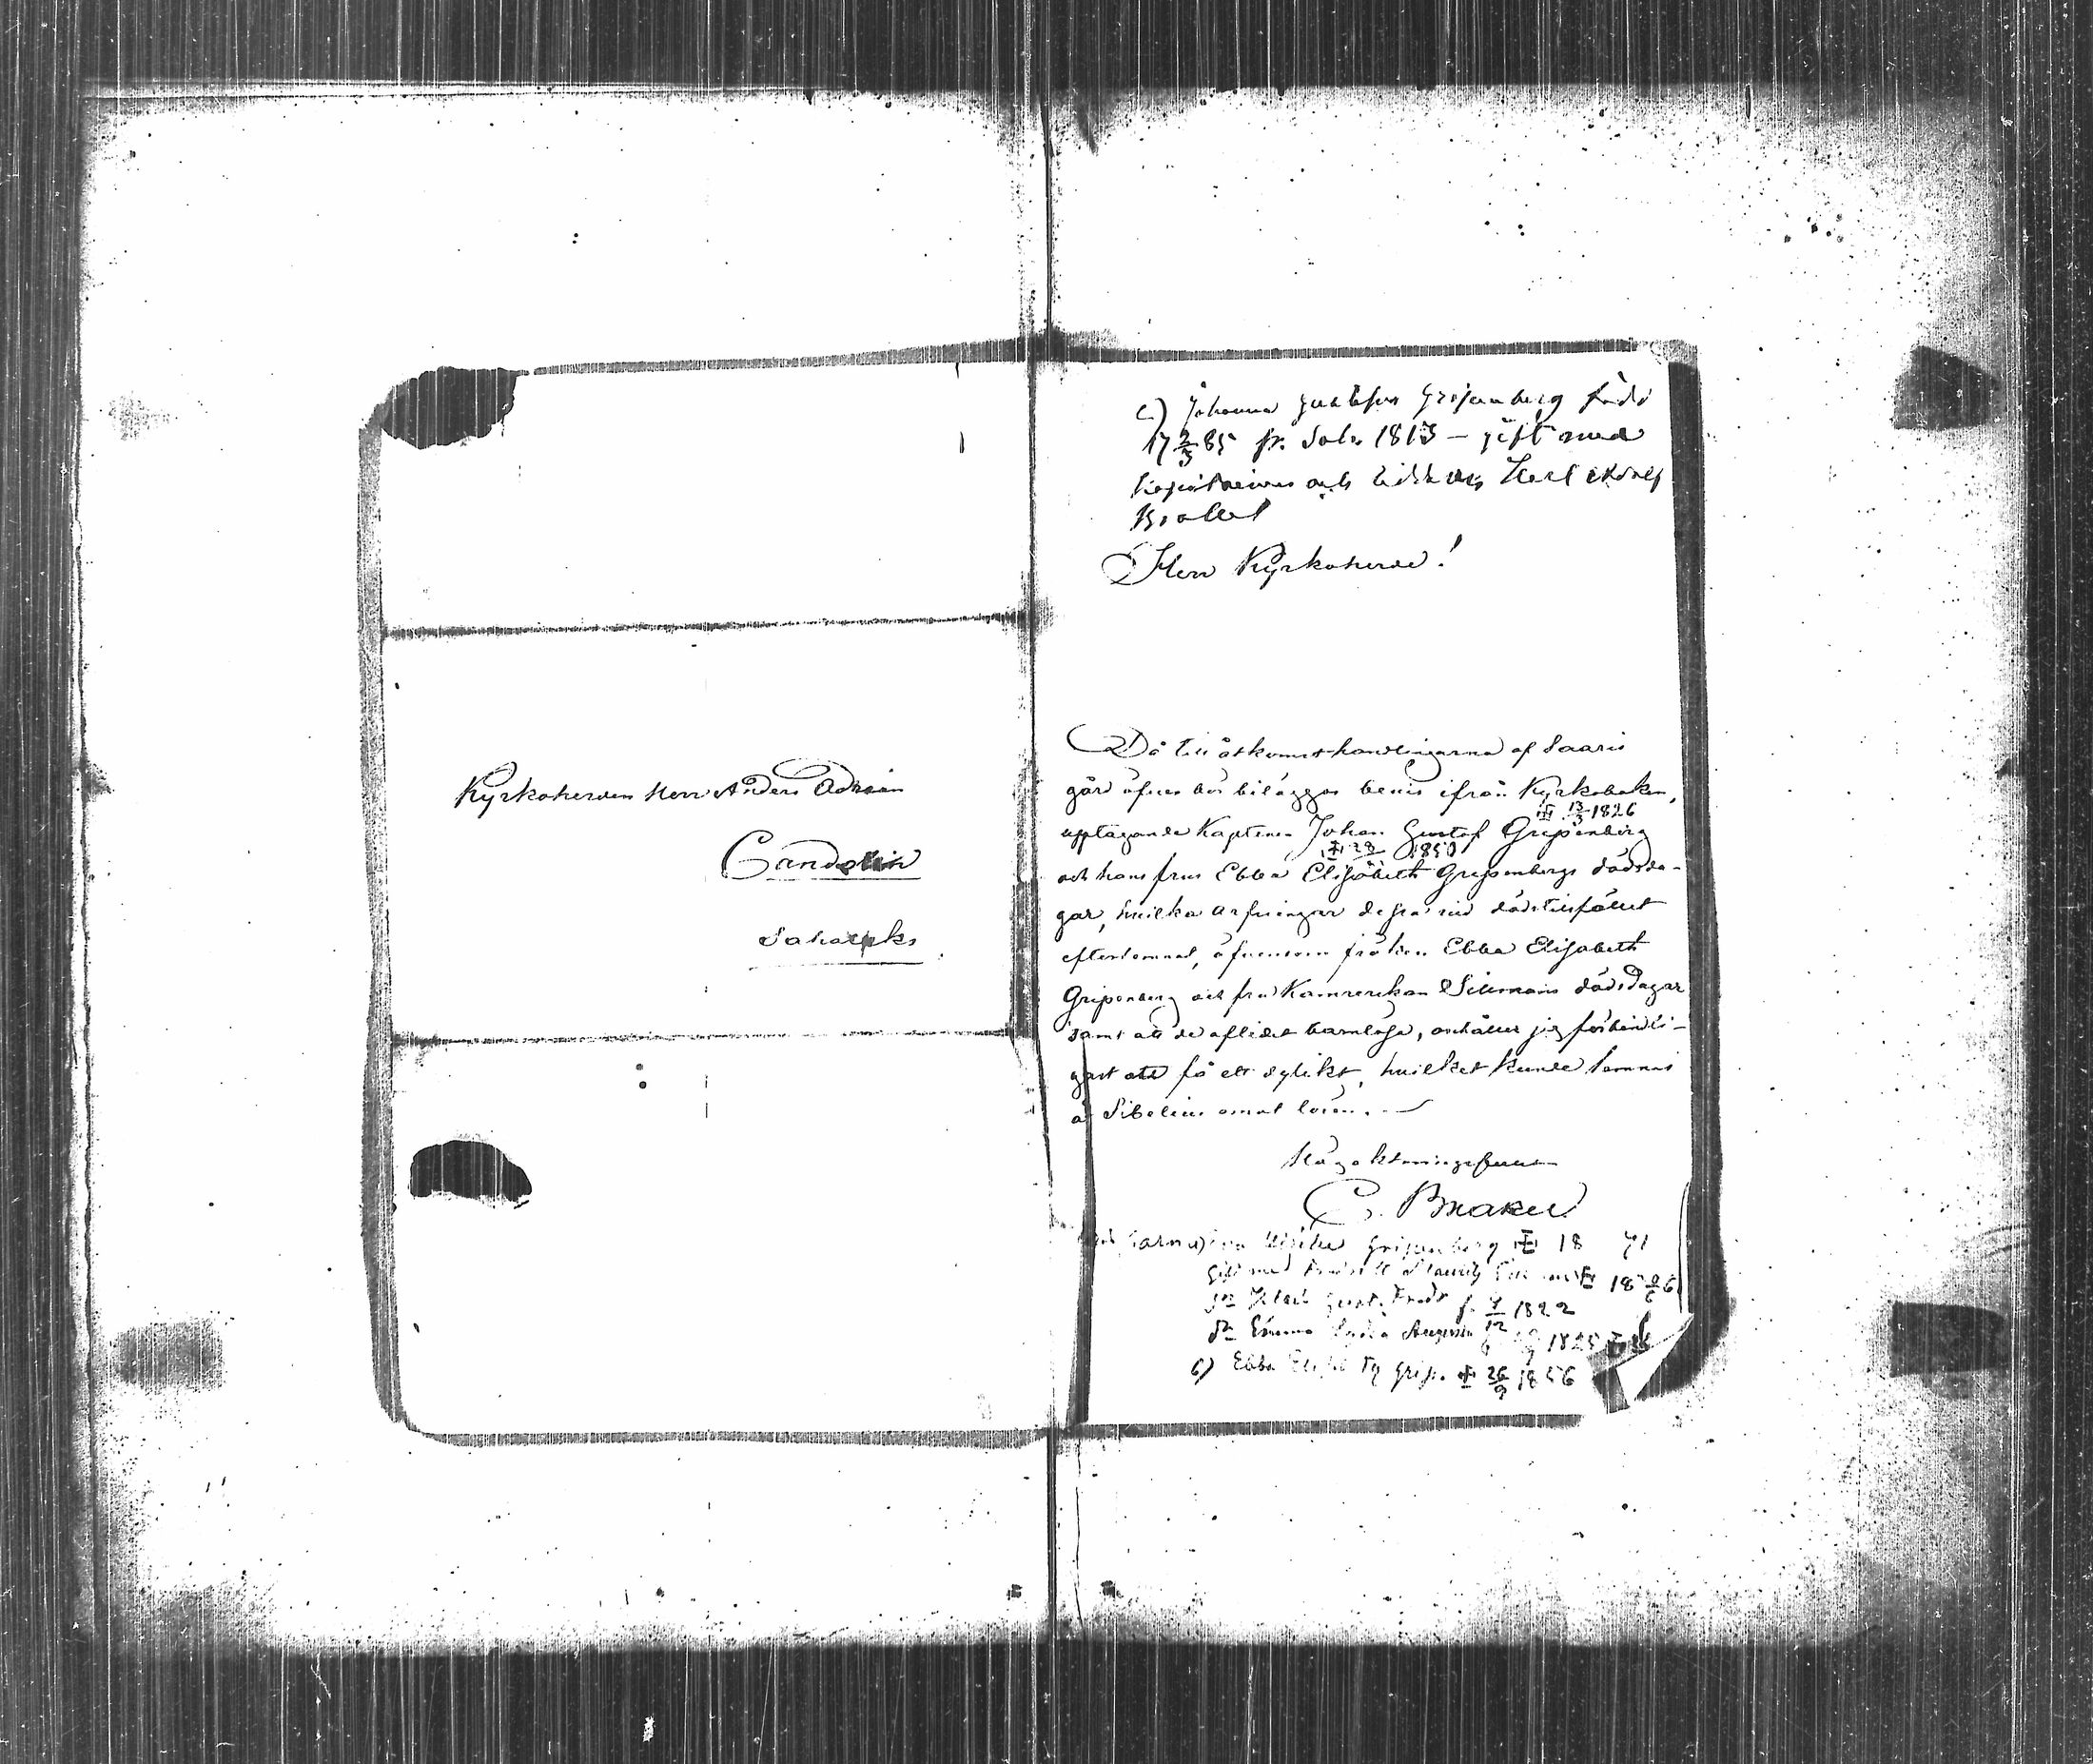 Kyrkoherden Herr Anders Adrian
Candolin
Sahalaks
c) Johanna Gustafva Gripenberg född
17 2/3 85 fr. Solv 1813 – gift med
Kapitainen och Riddaren Karl Adolf
Brakel
Herr Kyrkoherde!
Då till åtkomsthandlingarna af Saaris
gård äfven bör biläggas bevis ifrån Kyrkoboken,
13/3 1826
upptagande Kaptenen Johan Gustaf Gripenberg
28 1850
och hans frus Ebba Elisabeth Gripenbergs dödsda-
gar, hvilka arfvingar dessa vid dödstillfället
efterlemnat, äfvensom fröken Ebba Elisabeth
Gripenberg och fru Kamrerskan Sillmans dödsdagar
samt att de aflidit barnlösa, anhåller jag förbindli-
gast att få ett sylikt, hvilket kunde lemnas
åt Sibelius emot lösen. –
Högaktningsfullt
C. Brakel
Ulrika Gripenberg 18 71
Gift med 18 2/6 6
Gust. Fredr f. 4/12 1822
Emma 1825
b) Ebba Elis. Grip. 26/9 1856